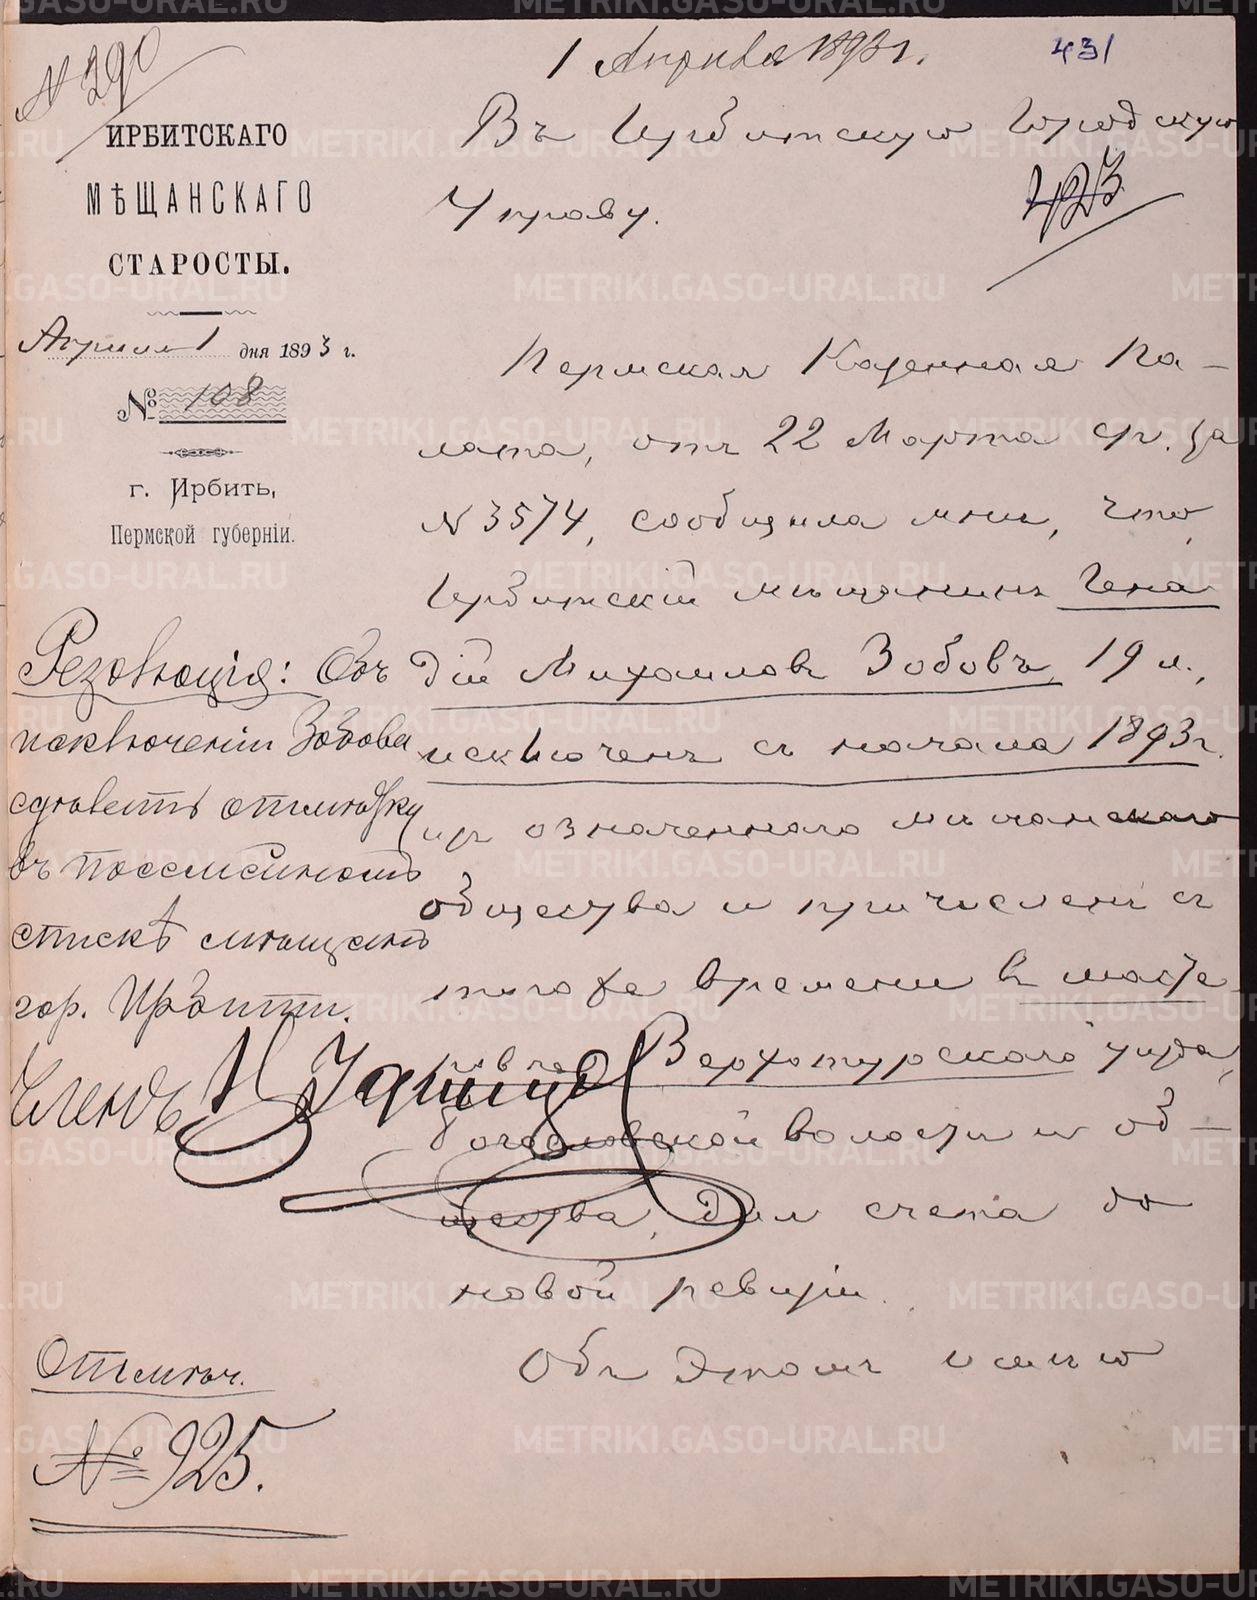 № 290
1 Апреля 1893 г.
431
ИРБИТСКАГО
МѢЩАНСКАГО
СТАРОСТЫ.
Апреля 1 дня 1893 г.
№ 108
г. Ирбить,
Пермской губерніи.
Въ Ирбитскую Городскую
Управу.
423
Пермская Казенная Па-
лата, отъ 22 Марта с/г. за
№ 3574, сообщила мнѣ, что,
Ирбитскій мѣщанинъ Гена
дій Михаиловъ Зобовъ, 19 л.,
исключенъ съ начала 1893 г.
изъ означеннаго мѣщанскаго
общества и причисленъ съ
того же времени въ
Верхотурскаго уѣзда,
Богословской волости и об-
щества, для счета до
новой ревизіи.
Объ этомъ имѣю
Резолюція: Объ
исключеніи Зобова
сдѣлать отмѣтку
въ посемейномъ
спискѣ мѣщанъ
гор. Ирбити.
Членъ
Отмѣч.
№ 925.
METRIKI.GASO-URAL.RU